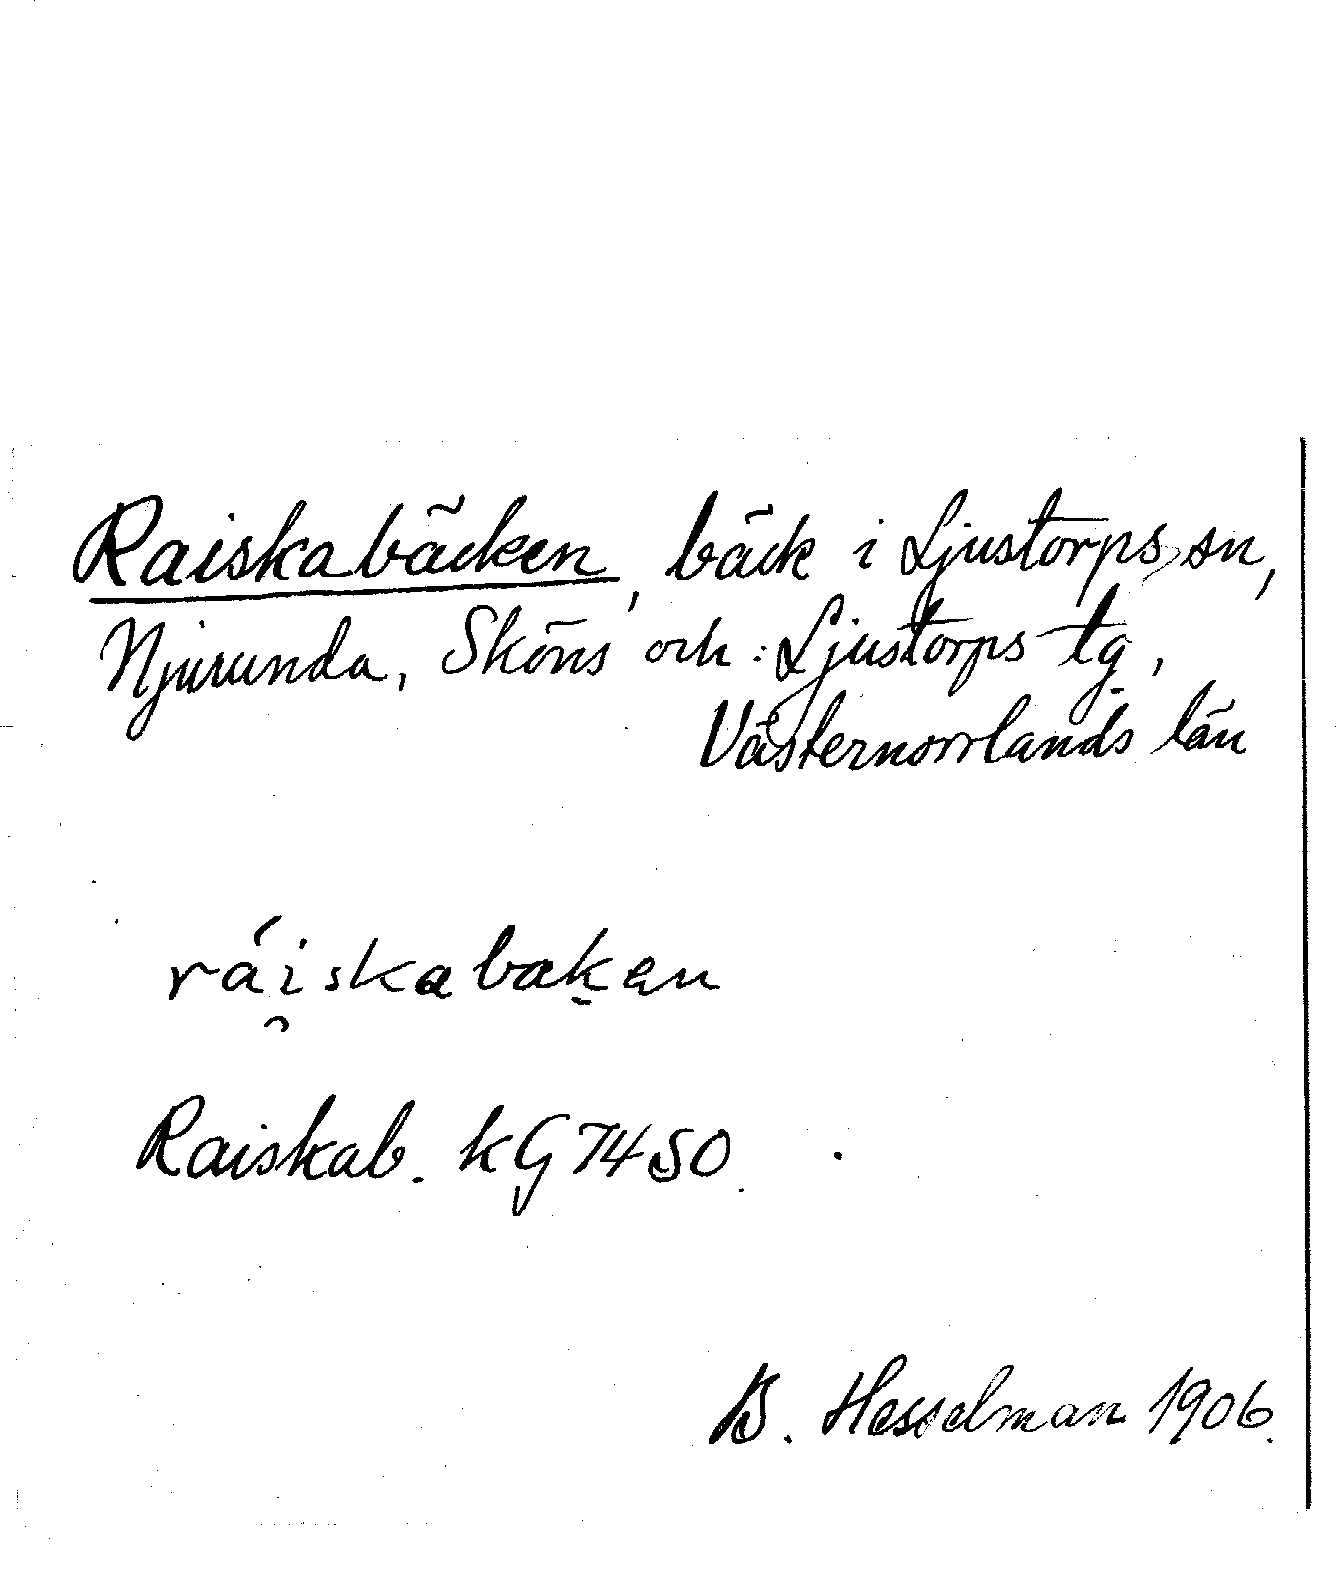 Raiskabäcken, bäck i Ljustorps sn,
Njurunda, Sköns och Ljustorps tg,
Västernorrlands län
ráiskabaken
Raiskab. kG 74 SO.
B. Hesselman 1906.